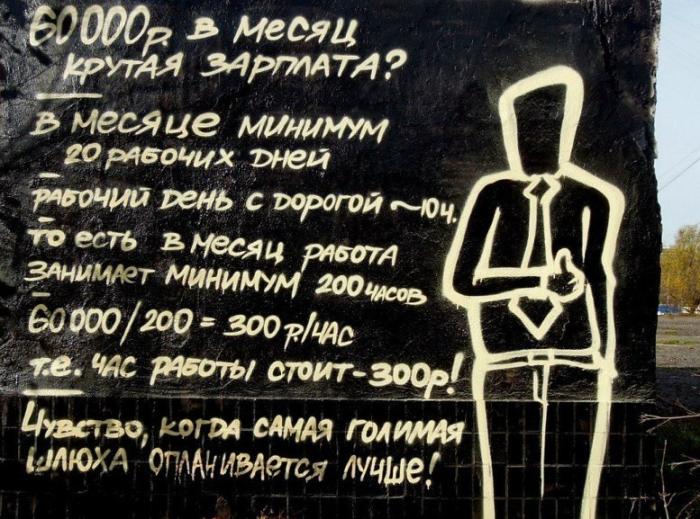 60000р. в месяц
крутая зарплата?
в месяце минимум
20 рабочих дней
рабочий день с дорогой ~10ч.
то есть в месяц работа
занимает минимум 200 часов
60000/200 = 300р/час
т.е. час работы стоит-300р!
Чувство, когда самая голимая
шлюха оплачивается лучше!